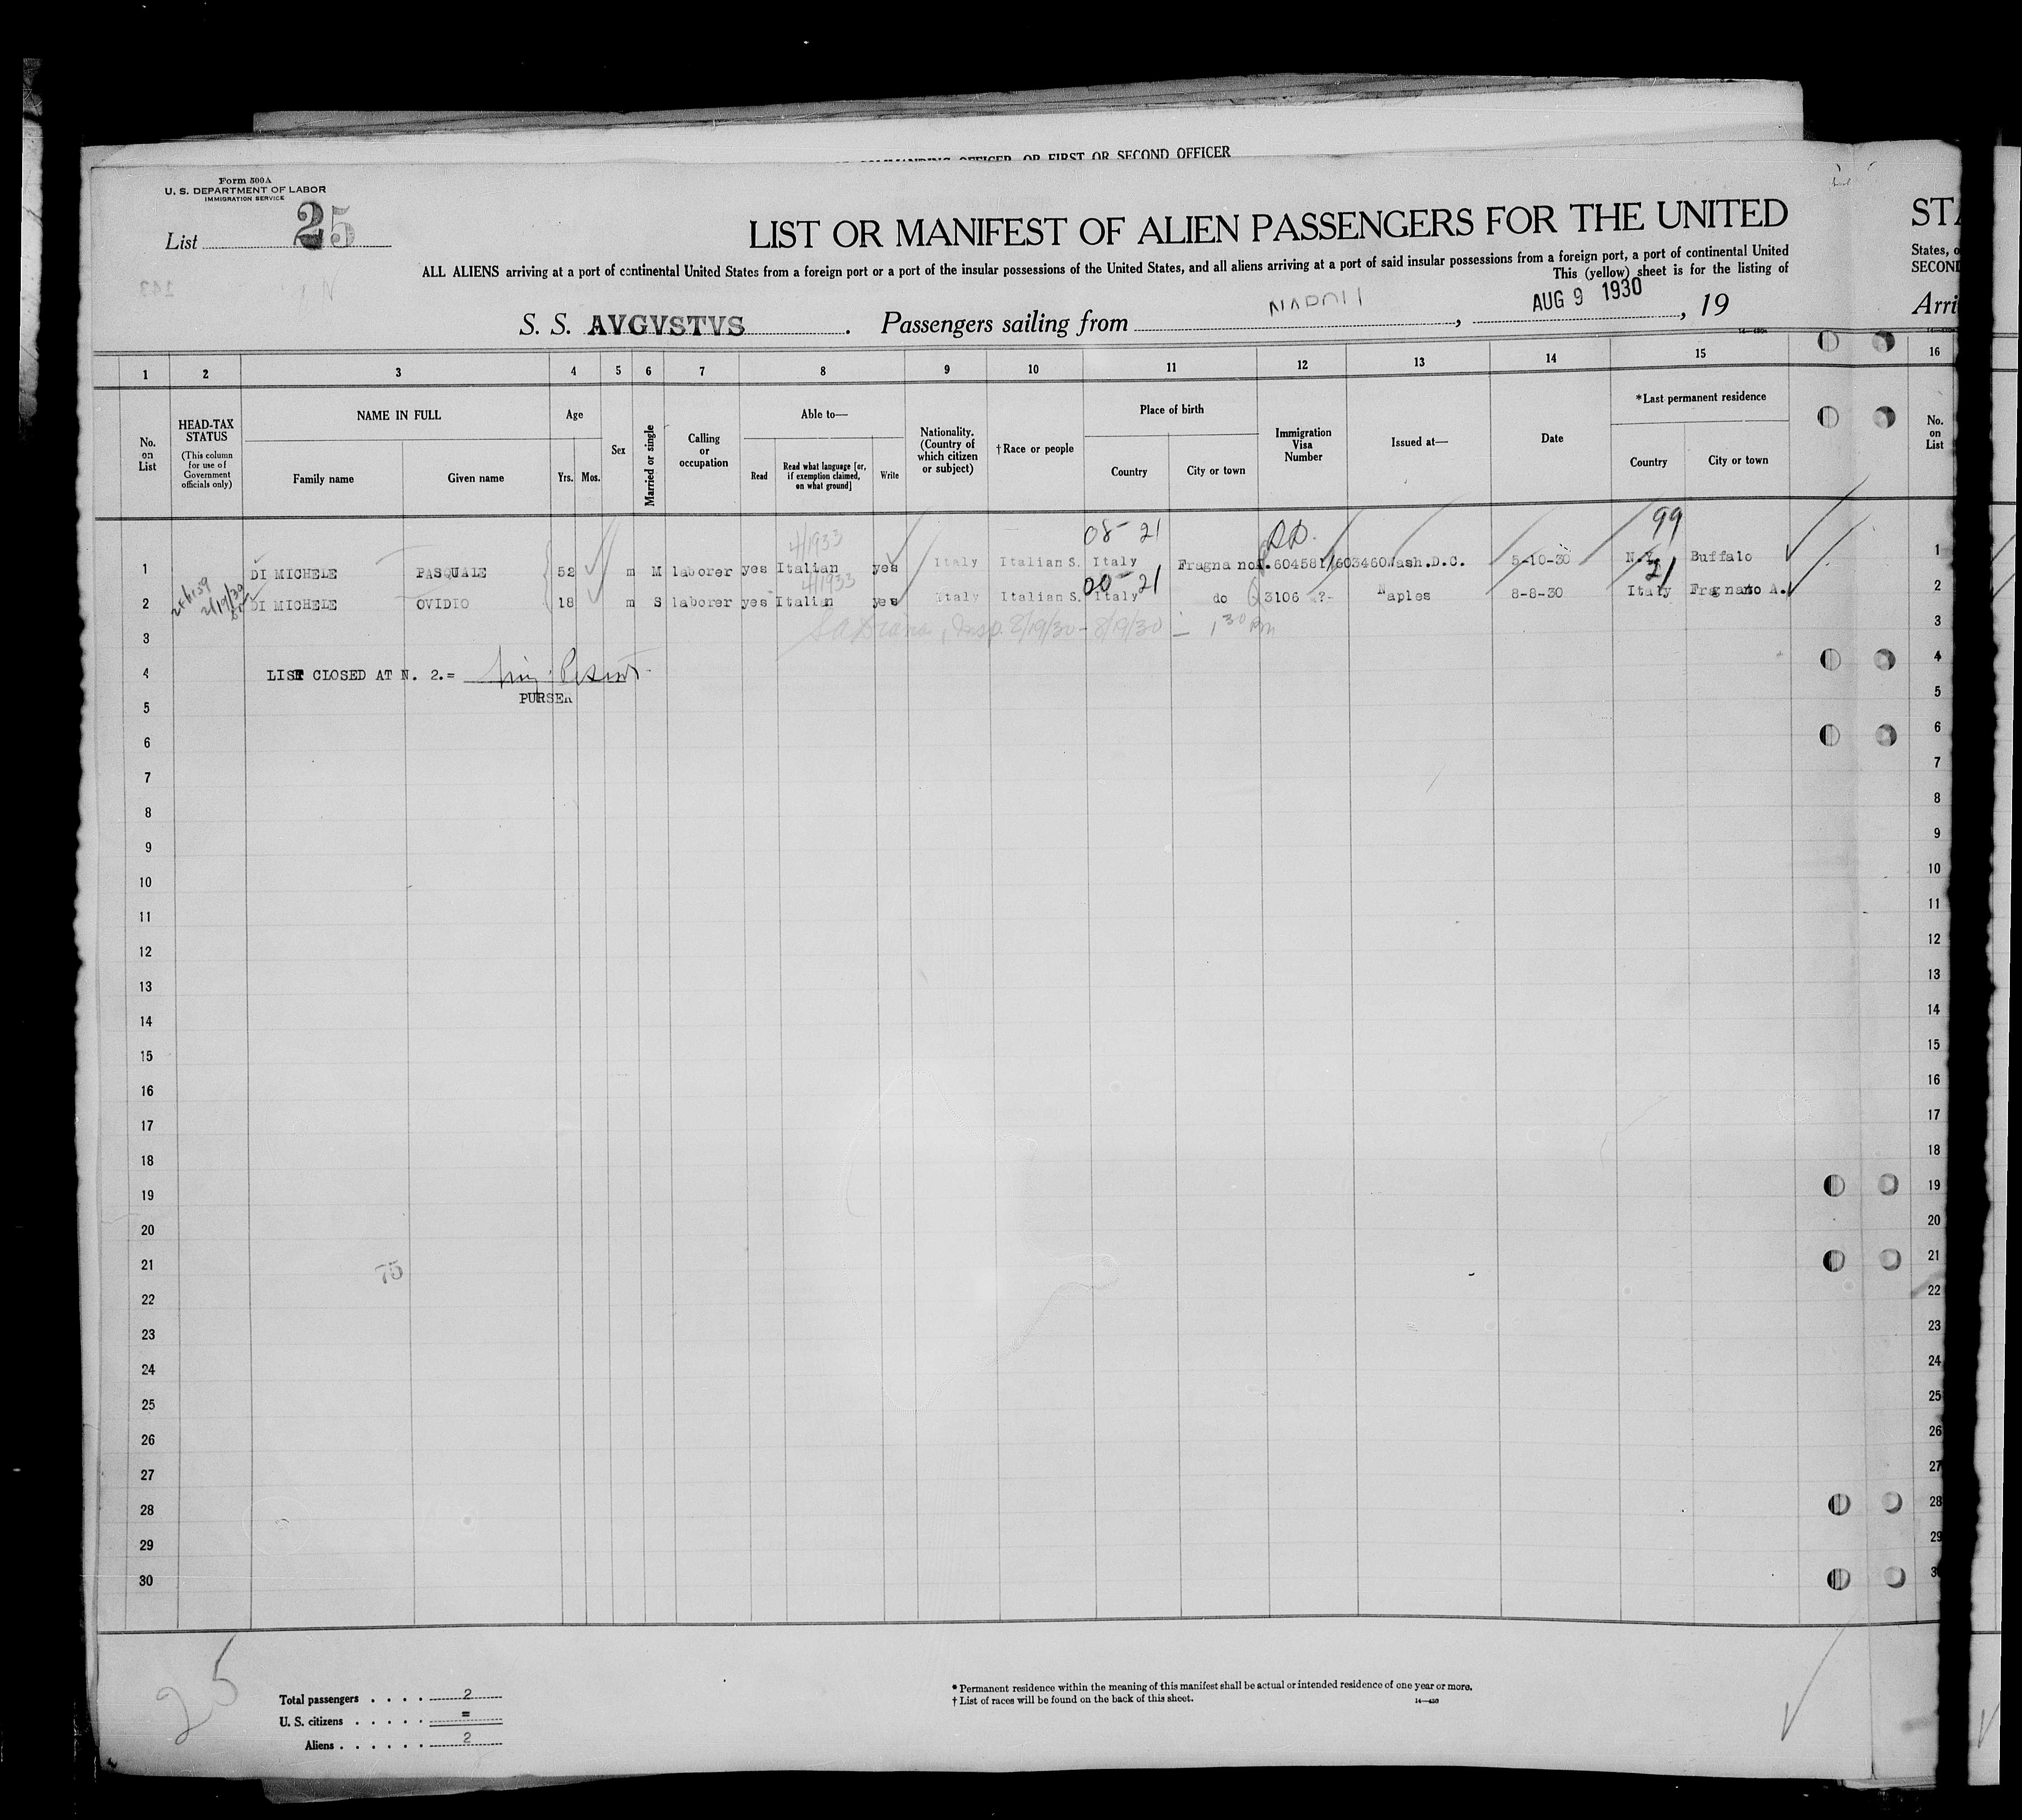 COMMANDING OFFICER, OR FIRST OR SECOND OFFICER
Form 500A
U. S. DEPARTMENT OF LABOR
IMMIGRATION SERVICE
List 25
LIST OR MANIFEST OF ALIEN PASSENGERS FOR THE UNITED
ALL ALIENS arriving at a port of continental United States from a foreign port or a port of the insular possessions of the United States, and all aliens arriving at a port of said insular possessions from a foreign port, a port of continental United
This (yellow) sheet is for the listing of
S. S. AVGVSTVS. Passengers sailing from NAPOLI, AUG 9 1930, 19
STA
States, o
SECOND
Arri
1 2 3 4 5 6 7 8 9 10 11 12 13 14 15 16
No. on List
HEAD-TAX STATUS
(This column for use of Government officials only)
NAME IN FULL
Family name Given name
Age
Yrs. Mos.
Sex
Married or single
Calling or occupation
Able to—
Read
Read what language [or, if exemption claimed, on what ground]
Write
Nationality. (Country of which citizen or subject)
†Race or people
Place of birth
Country City or town
Immigration Visa Number
Issued at—
Date
*Last permanent residence
Country City or town
No. on List
4/1933 08-21 99
1 DI MICHELE PASQUALE 52 m M laborer yes Italian yes Italy Italian S. Italy Fragna no 604581/603460 Wash.D.C. 5-10-30 N.Y. Buffalo 1
4/1933 21 21
2 DI MICHELE OVIDIO 18 m S laborer yes Italian yes Italy Italian S. Italy do 3106 ?- Naples 8-8-30 Italy Fragnano A. 2
3 8/19/30 - 8/19/30 - 1 30 Pm 3
4 LIST CLOSED AT N. 2.= 4
PURSER
5 5
6 6
7 7
8 8
9 9
10 10
11 11
12 12
13 13
14 14
15 15
16 16
17 17
18 18
19 19
20 20
21 75 21
22 22
23 23
24 24
25 25
26 26
27 27
28 28
29 29
30 3
25
Total passengers . . . . 2
U. S. citizens . . . . . =
Aliens . . . . . . 2
* Permanent residence within the meaning of this manifest shall be actual or intended residence of one year or more.
† List of races will be found on the back of this sheet.
14—430